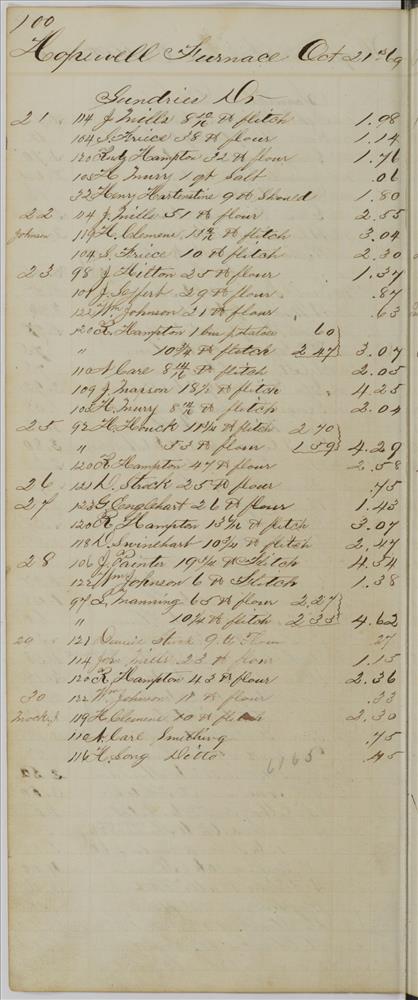 100
Hopewell Furnace Oct 21st 69
Sundries Dr
21 114 J Mills 8 10/16 ℔ flitch 1.98
104 S. Friece 38 ℔ flour 1.14
120 Hampton 32 ℔ flour 1.76
108 H. Murry 1 qt Salt .06
32 Henry Hartenstine 9 ℔ Should 1.80
22 114 J. Mills 51 ℔ flour 2.55
Johnson 119 H. Clemens ℔ flitch 3.04
104 S. Friece 10 ℔ flitch 2.30
23 98 J Hilton 25 ℔ flour 1.37
101 J. Seffert 29 ℔ flour .87
122 Wm Johnson 21 ℔ flour .63
120 R. Hampton 1 bus potatoes 60
" 10 3/4 ℔ flitch 2 47 3.07
110 N Care 8 14/16 ℔ flitch 2.05
109 J. Marson 18 1/2 ℔ flitch 4.25
108 H. Murry 8 14/16 ℔ flitch 2.04
25 92 H. Houck 11 3/4 ℔ flitch 2 70
" 53 ℔ flour 1 59 4.29
120 R Hampton 47 ℔ flour 2.58
26 121 D. Strock 25 ℔ flour .75
27 123 G Englehart 26 ℔ flour 1.43
120 R Hampton 13 ℔ flitch 3.07
118 D. Swinehart 10 3/4 ℔ flitch 2.47
28 106 J Painter 19 3/4 ℔ Flitch 4.54
122 Wm Johnson 6 ℔ Flitch 1.38
97 Manning 65 ℔ flour 2.27
" 10 1/4 ℔ flitch 2 35 4.62
20 121 9 ℔ Flour 27
114 Mills 23 ℔ flour 1.15
120 R. Hampton 43 ℔ flour 2.36
30 122 Wm Johnson 11 ℔ flour .33
119 H Clemens 10 ℔ flitch 2.30
110 N. Care Smithing .75
116 H. Long Ditto .45
6165